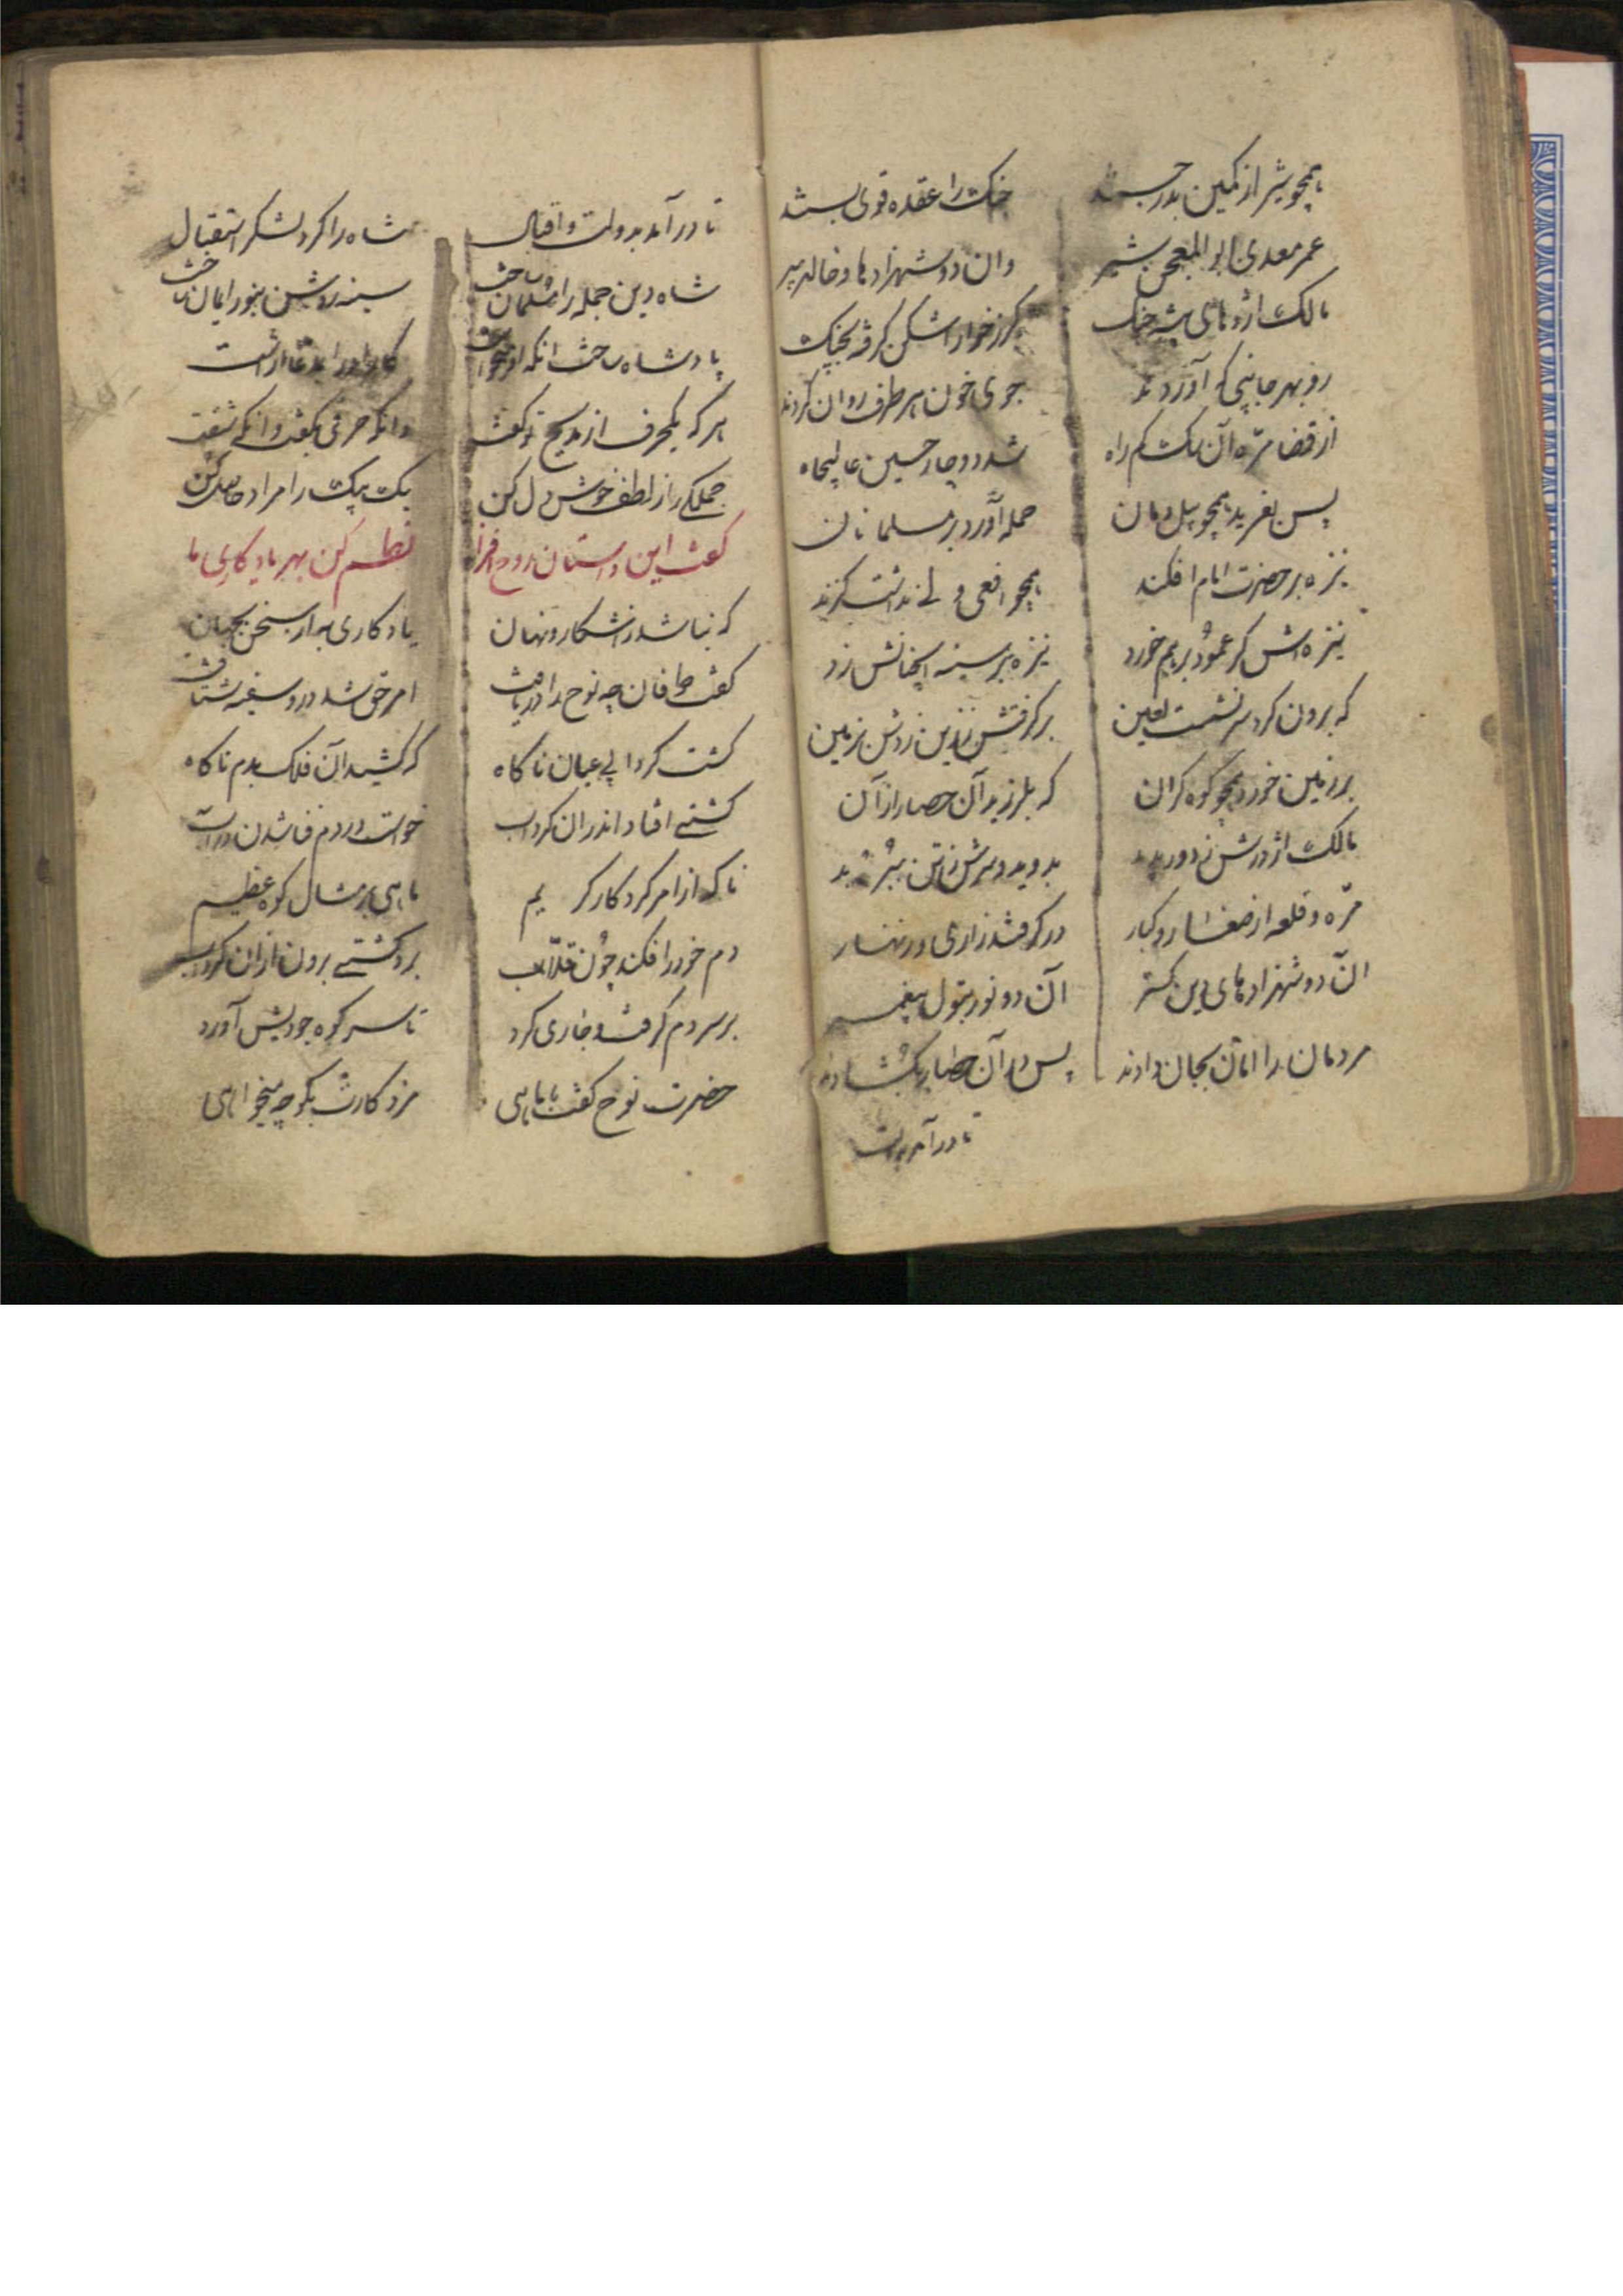 همچو شیر از کمین بدر جستند جنک را عقده قوی بستند
عمر معدی ابو المعجن شیر وان دو شهزادها و خالد پیر
مالک اژدهای بیشه جنک کرز خوارا شکن کرفته بچنک
رو بهر جانبی که آوردند جوی خون هر طرف روان کردند
از قضا مره آن سک کم راه شد دوچار حسین عالیجاه
پس بغرید همچو پیل دمان حمله آورد بر مسلمانان
نیزه بر حضرت امام افکند همچو افعی ولی نداشت کزند
نیزه اش کر عمود برهم خورد نیزه بر سینه اش زد
که برون کرد سر ز پشت لعین بر کرفتش ز زین زدش بزمین
بر زمین خورد همچو کوه کران که بلرزید آن حصار از آن
مالک اژدرش ز دور بدید بدوید و سرش ز تن ببرید
مره و قلعه از صغار و کبار در کرفتند زاری و زنهار
آن دو شهزادهای دین کستر آن دو نور بتول پیغمبر
مردمان را امان بجان دادند پس در آن حصار بکشادند
تا در آمد بدولت
تا در آمد بدولت و اقبال شاه را کرد لشکر استقبال
شاه دین جمله را مسلمان ساخت سینه روشن بنور ایمان ساخت
پادشاه ساخت انکه او
هر که یکحرف از مدیح تو کفت وانکه حرفی بکفت وانکه شنفت
جملکی را ز لطف خوش دل کن یک بیک را مراد حاصل کن
کفت این داستان روح افزا نظم کن بهر یادکاری ما
که نباشد در اشکار و نهان یادکاری به از سخن بجهان
کفت طوفان چه نوح را دریافت امر حق شد در و سفینه شتافت
کشت کردابی عیان ناکاه که کشید آن فلک بدم ناکاه
کشتی افتاد اندران کرداب خواست در دم فنا شدن در آب
ناکه از امر کردکار کریم ماهی بر مثال کوه عظیم
دم خود را فکند چون قلاب برد کشتی برون از آن کرداب
بر سر دم کرفت و جاری کرد تا سر کوه جودیش آورد
حضرت نوح کفت با ماهی مزد کارت بکو چه میخواهی